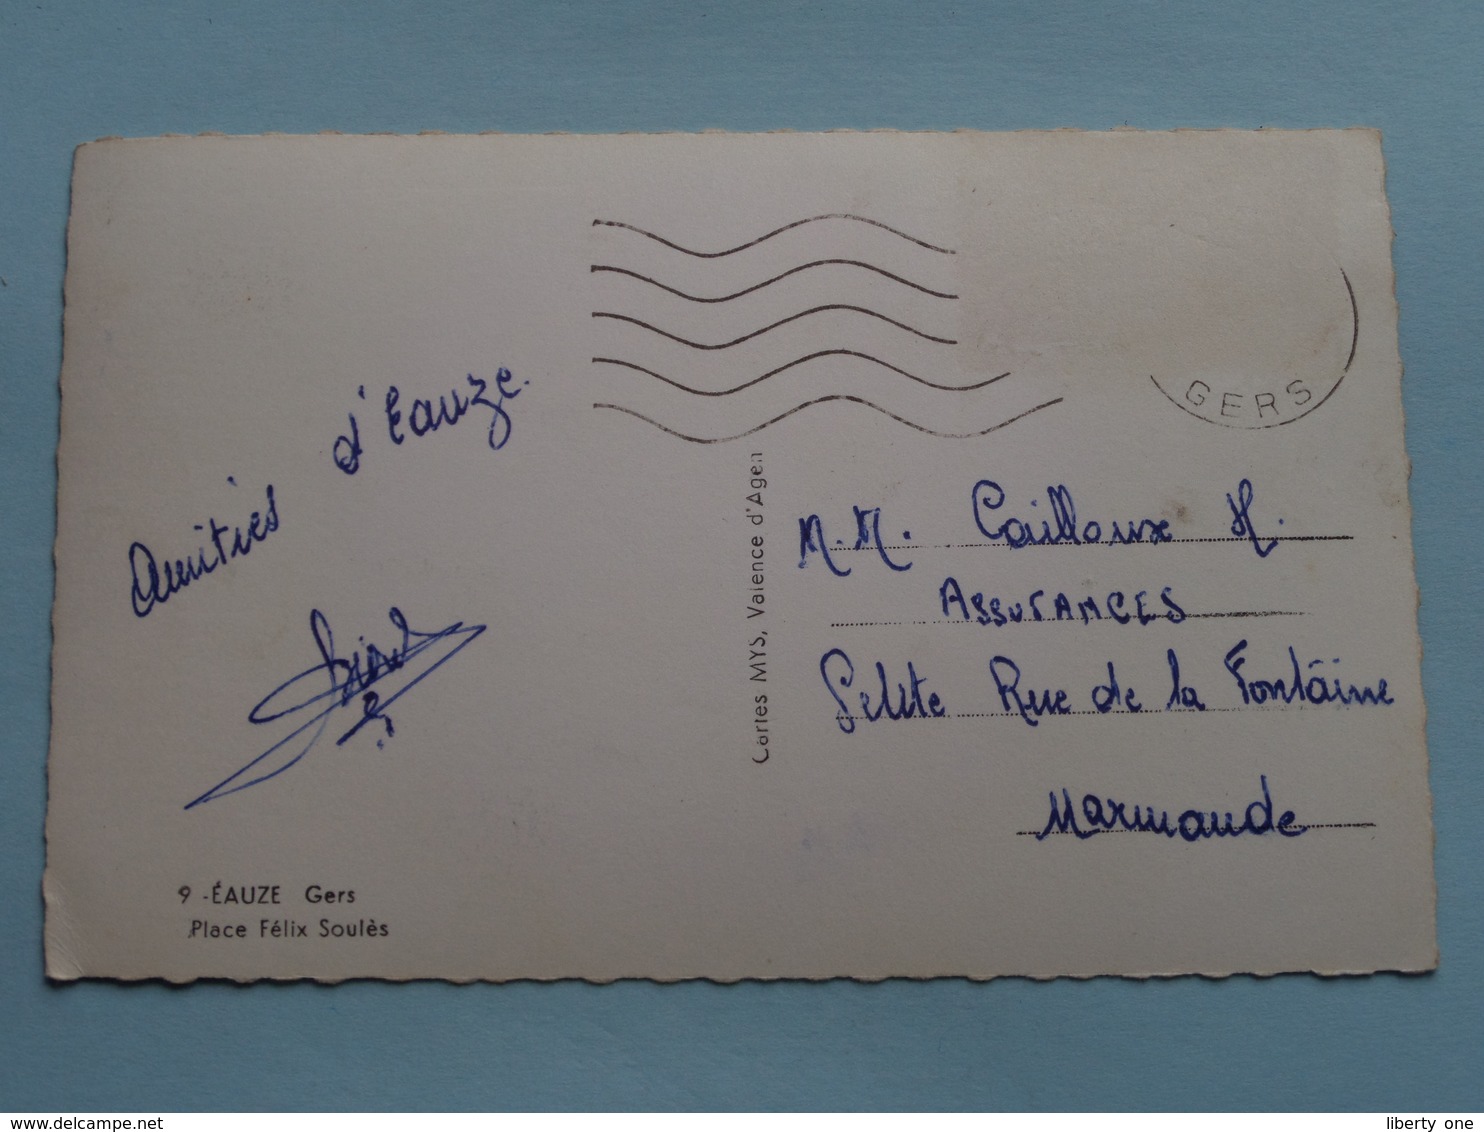 GERS
Amitiés d'Eauze.
M.M. Cailloux H.
ASSURANCES
Petite Rue de la Fontaine
Marmande
Cartes MYS, Valence d'Agen
9 - ÉAUZE Gers
Place Félix Soulès
www.delcampe.net
liberty one